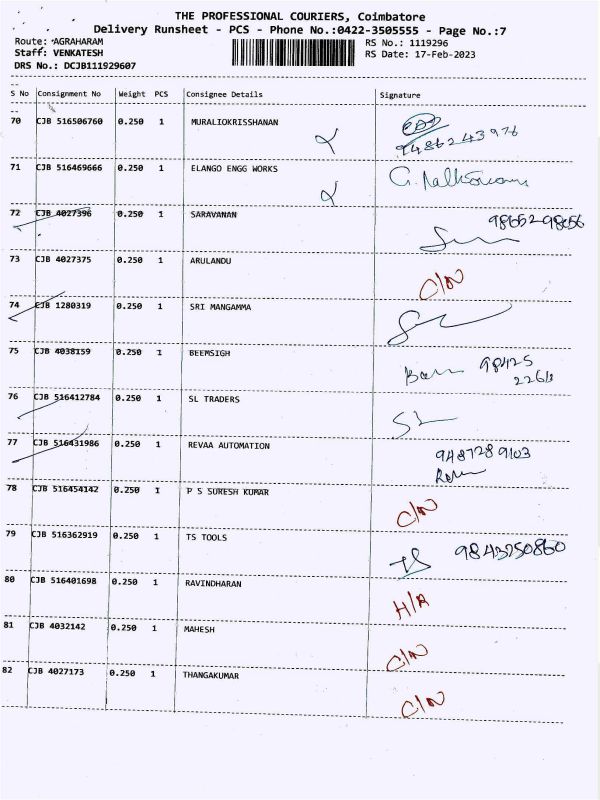 THE PROFESSIONAL COURIERS, Coimbatore
Delivery Runsheet - PCS - Phone No.:0422-3505555 - Page No.:7
Route: AGRAHARAM RS No.: 1119296
Staff: VENKATESH RS Date: 17-Feb-2023
DRS No.: DCJB111929607
S No Consignment No Weight PCS Consignee Details Signature
70 CJB 516506760 0.250 1 MURALIOKRISSHANAN
9486243976
71 CJB 516469666 0.250 1 ELANGO ENGG WORKS
72 CJB 4027396 0.250 1 SARAVANAN
73 CJB 4027375 0.250 1 ARULANDU C/N
74 CJB 1280319 0.250 1 SRI MANGAMMA
75 CJB 4038159 0.250 1 BEEMSIGH 98425
2264
76 CJB 516412784 0.250 1 SL TRADERS SL
77 CJB 516431986 0.250 1 REVAA AUTOMATION 9487289103
78 CJB 516454142 0.250 1 P S SURESH KUMAR C/N
79 CJB 516362919 0.250 1 TS TOOLS TS 9843250860
80 CJB 516401698 0.250 1 RAVINDHARAN H/A
81 CJB 4032142 0.250 1 MAHESH C/N
82 CJB 4027173 0.250 1 THANGAKUMAR C/N